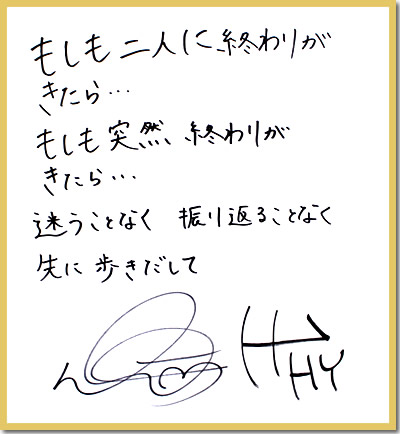 もしも二人に終わりが
きたら…
もしも突然終わりが
きたら…
迷うことなく 振り返ることなく
先に歩きだして
HY